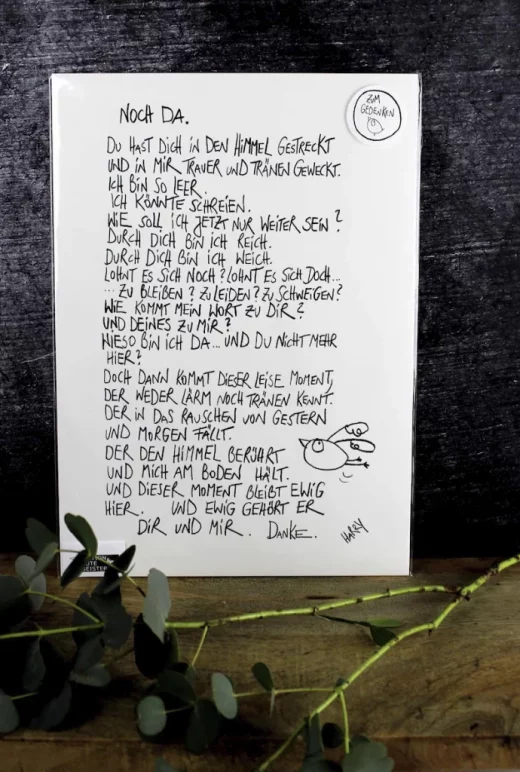 NOCH DA.
ZUM
GEDENKEN
DU HAST DICH IN DEN HIMMEL GESTRECKT
UND IN MIR TRAUER UND TRÄNEN GEWECKT.
ICH BIN SO LEER.
ICH KÖNNTE SCHREIEN.
WIE SOLL ICH JETZT NUR WEITER SEIN?
DURCH DICH BIN ICH REICH.
DURCH DICH BIN ICH WEICH.
LOHNT ES SICH NOCH? LOHNT ES SICH DOCH...
... ZU BLEIBEN? ZU LEIDEN? ZU SCHWEIGEN?
WIE KOMMT MEIN WORT ZU DIR?
UND DEINES ZU MIR?
WIESO BIN ICH DA... UND DU NICHT MEHR
HIER?
DOCH DANN KOMMT DIESER LEISE MOMENT,
DER WEDER LÄRM NOCH TRÄNEN KENNT.
DER IN DAS RAUSCHEN VON GESTERN
UND MORGEN FÄLLT.
DER DEN HIMMEL BERÜHRT
UND MICH AM BODEN HÄLT.
UND DIESER MOMENT BLEIBT EWIG
HIER. UND EWIG GEHÖRT ER
DIR UND MIR. DANKE.
HARRY
GEISTER